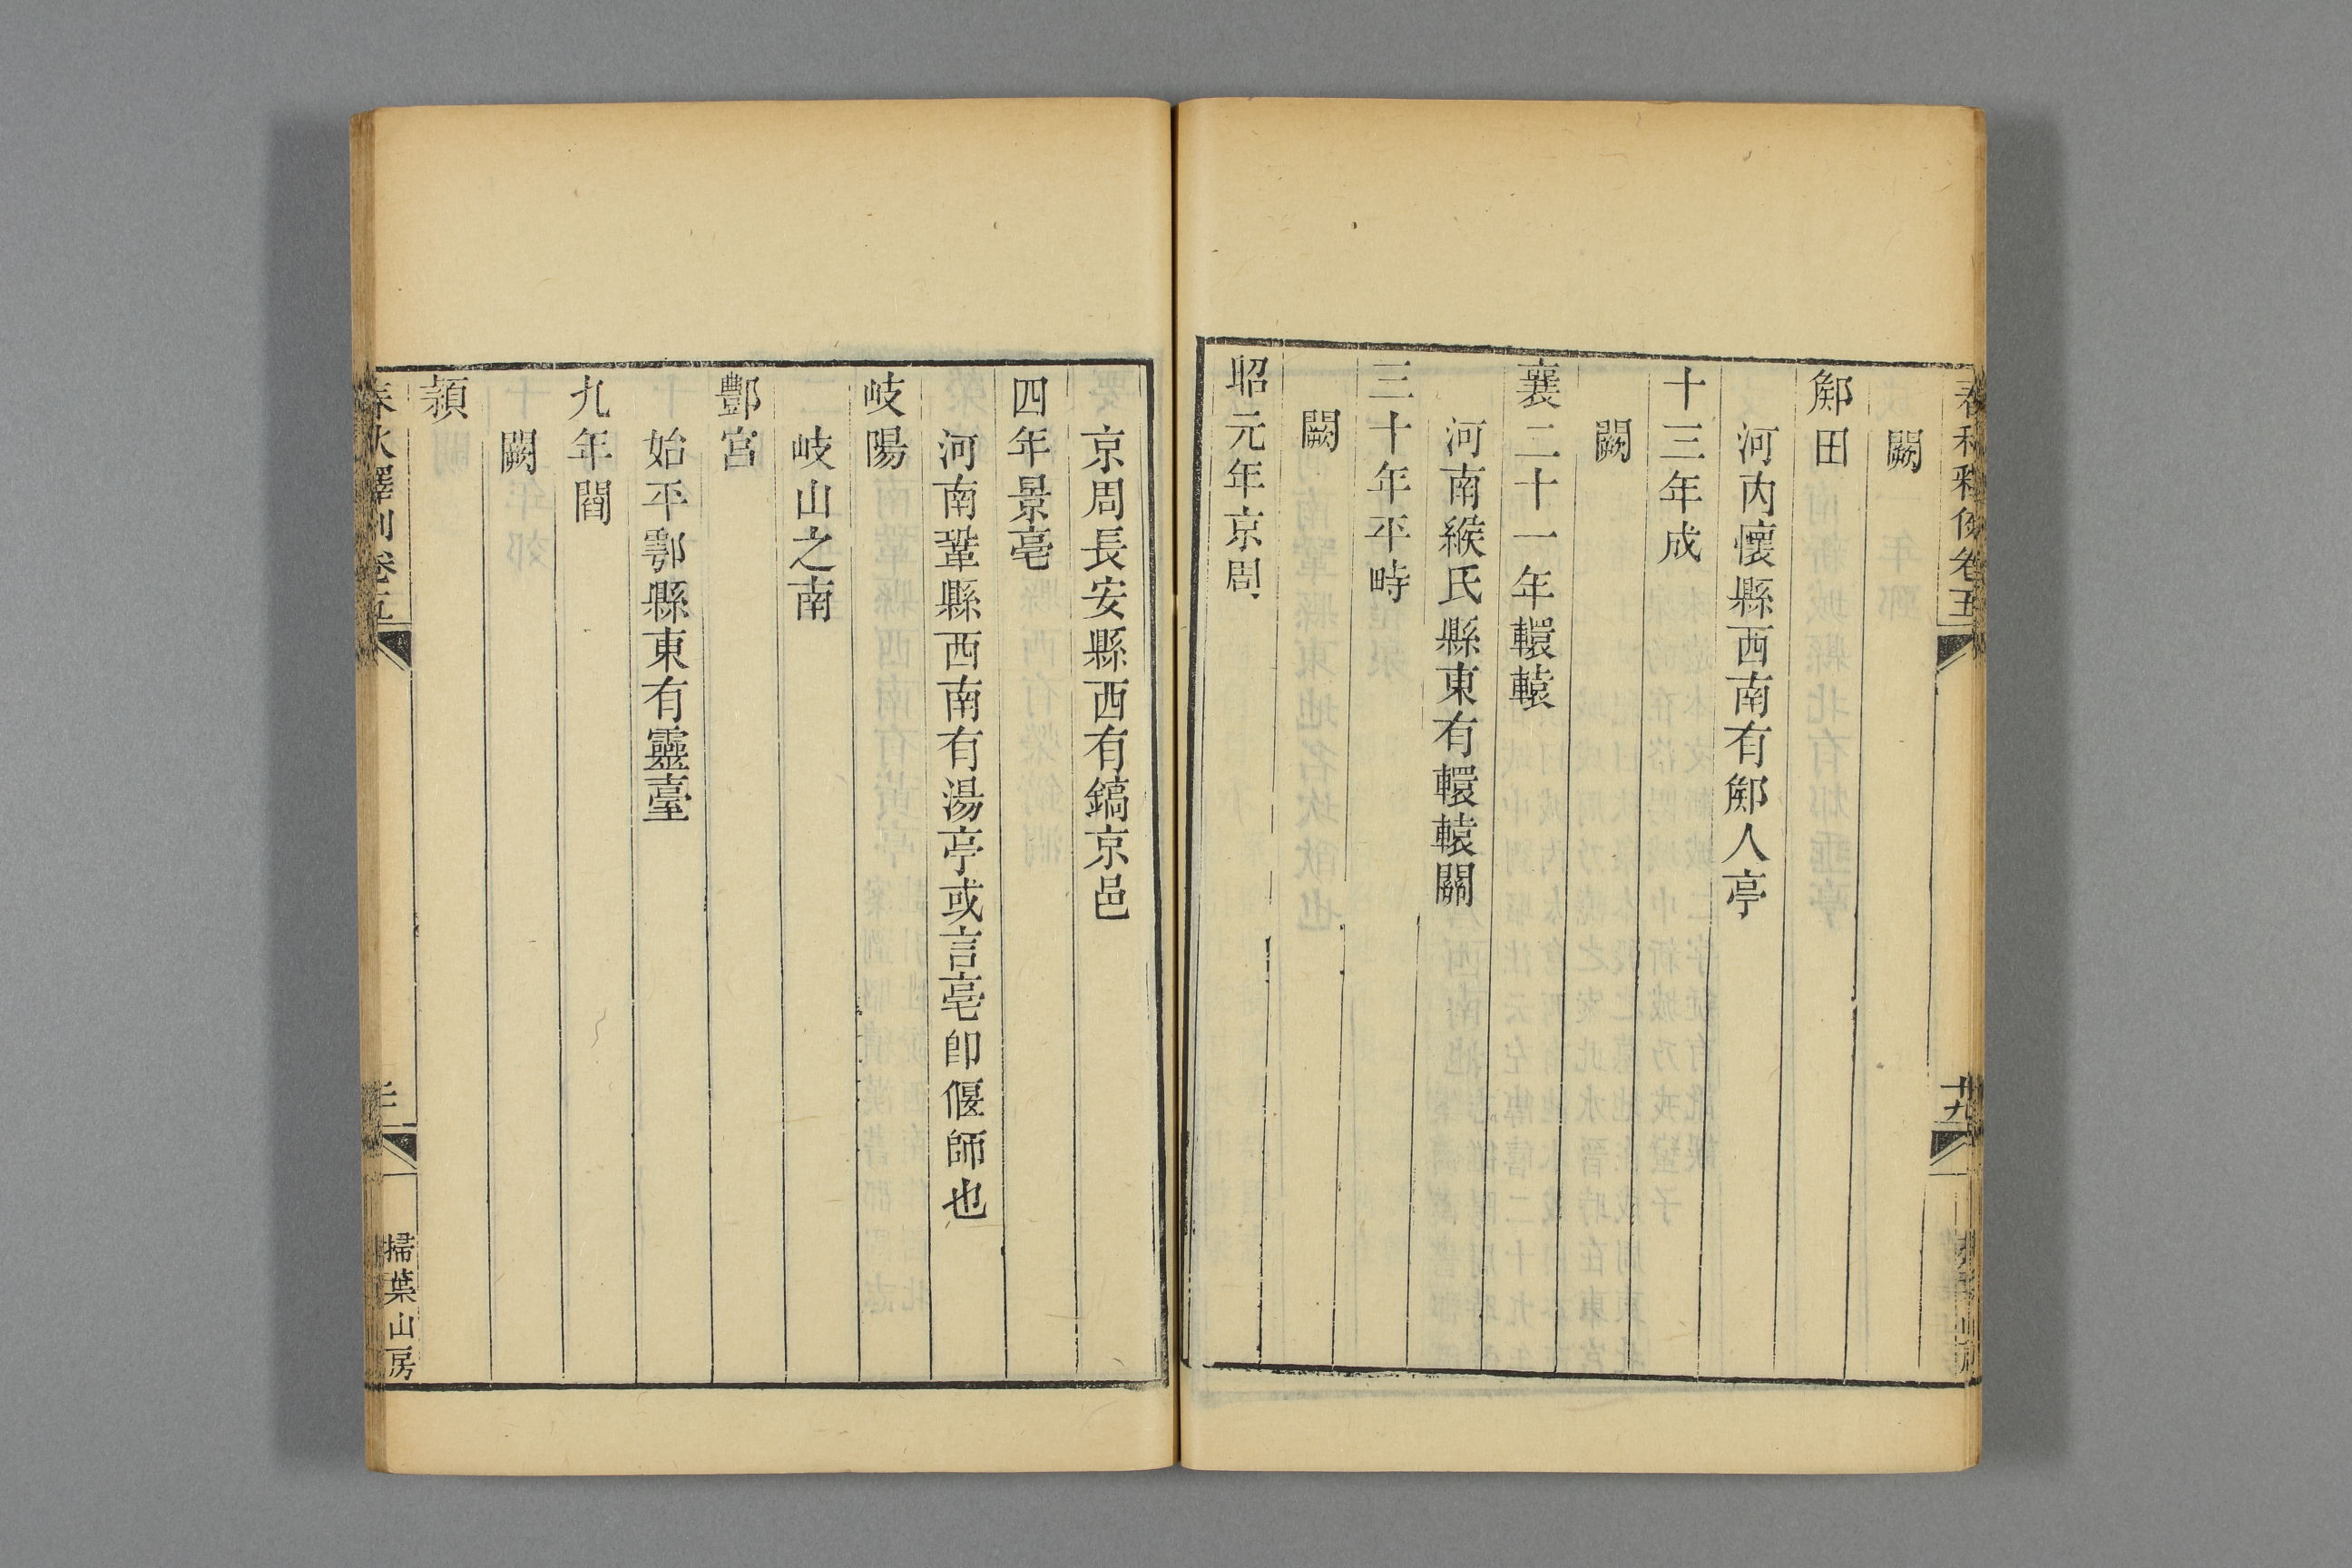 春秋釋例卷五
十九
闕
鄇田
河内懷縣西南有鄇人亭
十三年成
闕
襄二十一年轘轅
河南緱氏縣東有轘轅關
三十年平畤
闕
昭元年京周
京周長安縣西有鎬京邑
四年景亳
河南鞏縣西南有湯亭或言亳卽偃師也
岐陽
岐山之南
酆宮
始平鄠縣東有靈臺
九年閻
闕
頴
春秋釋例卷五
掃葉山房